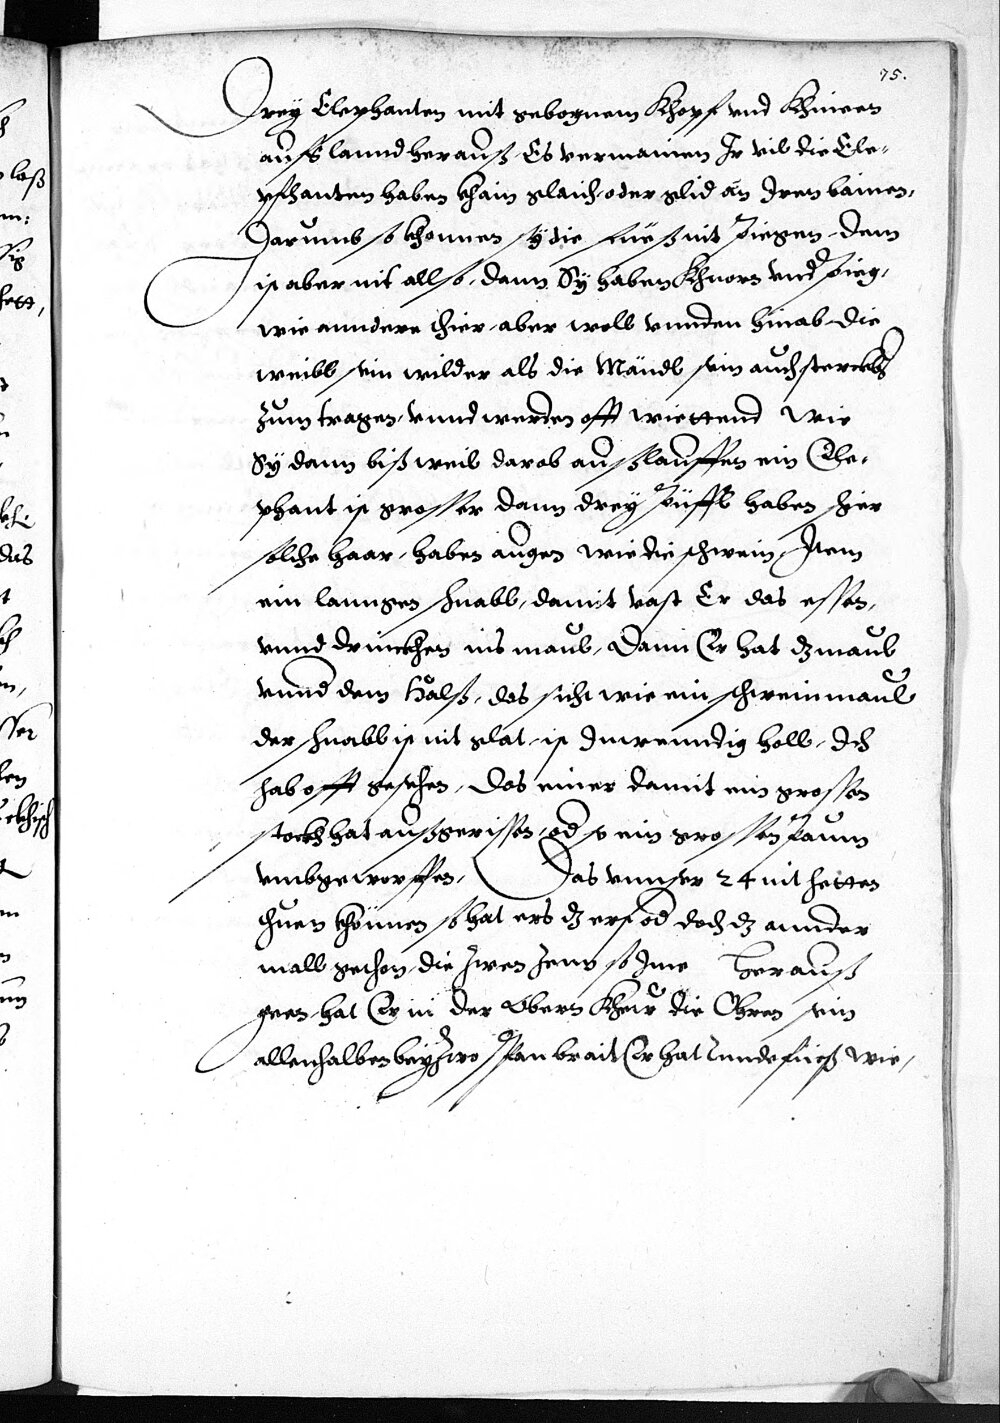 75.
Drey Elephanten mit gebognem Khopf vnd Khnieen
aufs lannd herauß. Es vermainen Ir vil die Ele-
phanten haben khain glaich oder glid an Iren bainen,
Darumb so khönnen sy die füeß nit piegen. dem
ist aber nit allso, dann Sy haben Khnorn vnd pieg,
wie anndere thier, aber woll vnnden hinab. die
weibl sein wilder als die Mändl, sein auch sterckhs
zum tragen, vnnd werden offt wiettend wie
Sy dann bißweil darob außlauffen ein Ele-
phant ist grosser dann drey Püffl haben schier
solche haar, haben augen wie die schwein, Item
ein lanngen schnabl, damit vast Er das essen,
vnnd drinckhen ins maul, Dann Er hat dz maul
vnnd dem halß, das sicht wie ein schweinmaul
der schnabl ist nit glat, ist Inwenndig holl, Ich
hab offt gesehen, das einer damit ein grossen
stockh hat außgerissen, od ein grossen paum
vmbgeworffen, Das vnnser 24 nit hetten
thuen khönnen so hat ers dz erst od doch dz annder
mall gethon, die zwen zenn so Ime herauß
geen hat Er in der obern Khew die Ohren sein
allenthalben bey zwo span brait Er hat runde füeß wie,